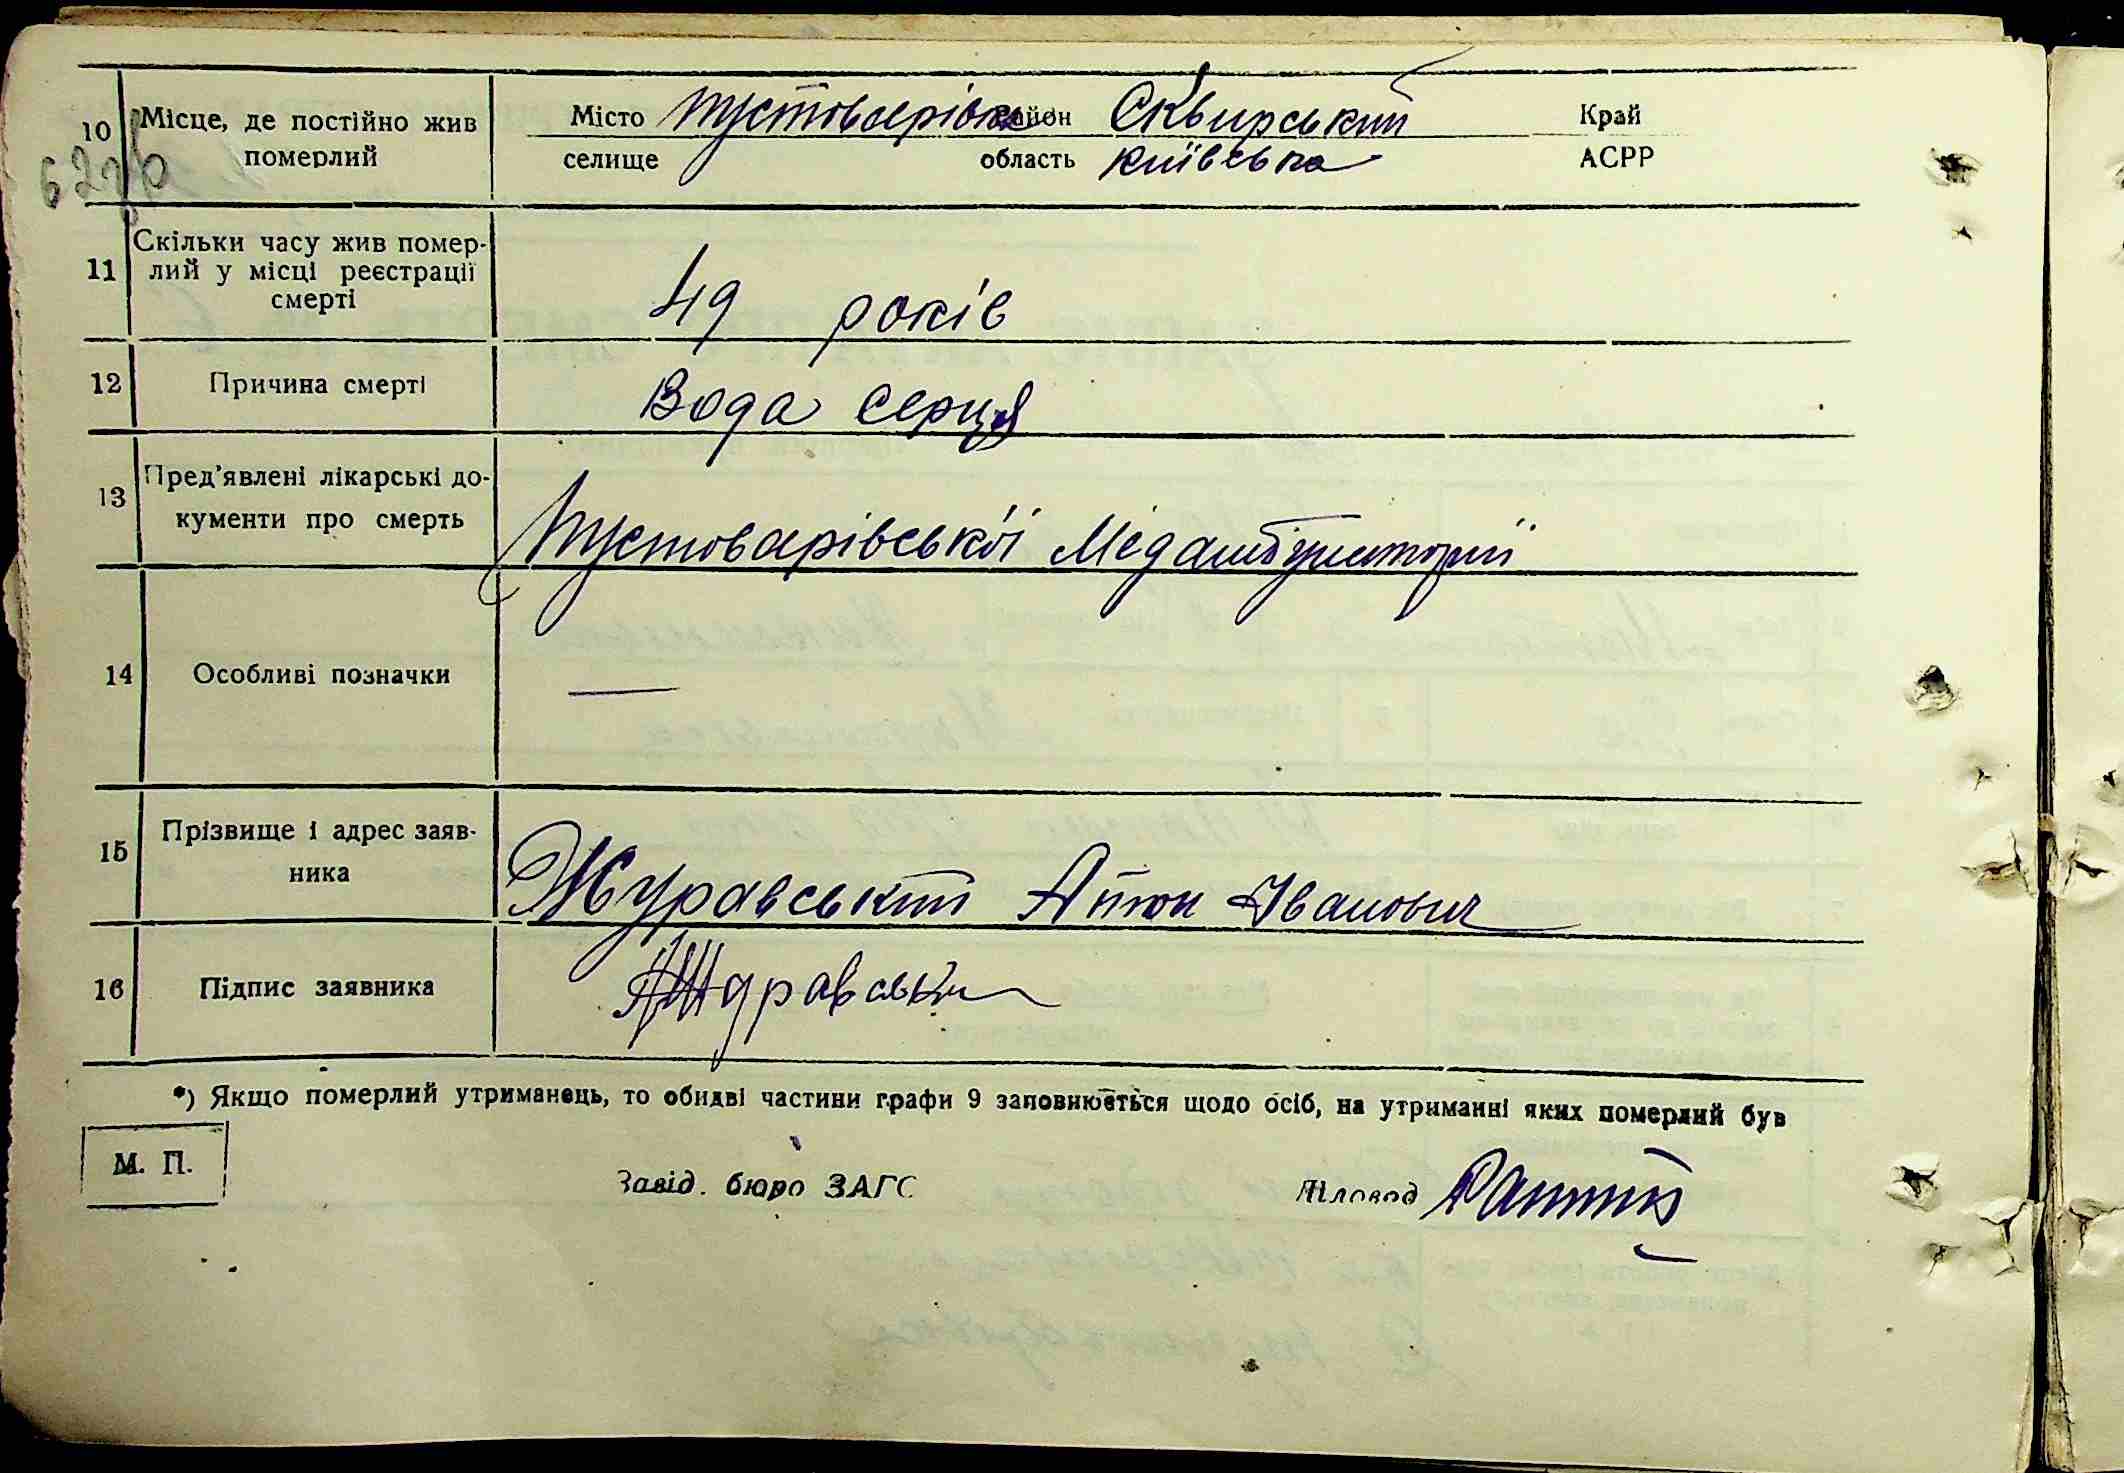 10 Місце, де постійно жив Місто Пустоварівка район Сквирський Край
62 зв померлий селище область Київська АСРР
11 Скільки часу жив помер-
лий у місці реєстрації
смерті 49 років
12 Причина смерті Вода серця
13 Пред’явлені лікарські до-
кументи про смерть Пустоварівської Медамбулиторії
14 Особливі позначки —
15 Прізвище і адрес заяв-
ника Журавський Антон Іванович
16 Підпис заявника АЖуравськи
*) Якщо померлий утриманець, то обидві частини графи 9 заповнюється щодо осіб, на утриманні яких померлий був
М. П. Завід. бюро ЗАГС Діловод